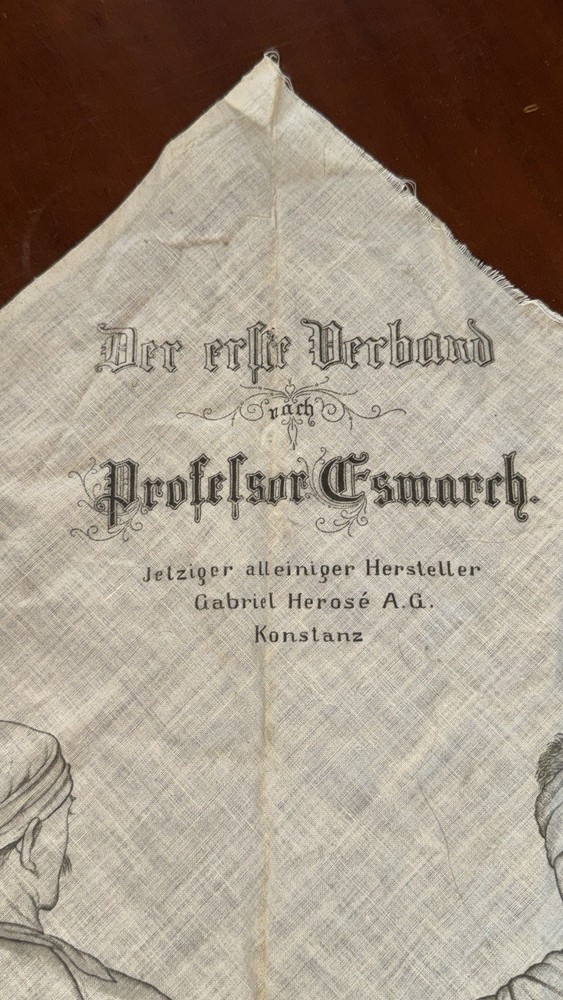 Der erste Verband
nach
Professor Esmarch.
Jetziger alleiniger Hersteller
Gabriel Herosé A.G.
Konstanz